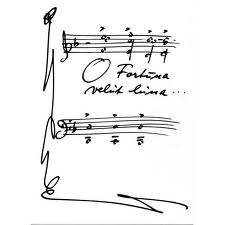 O Fortuna
velut luna...